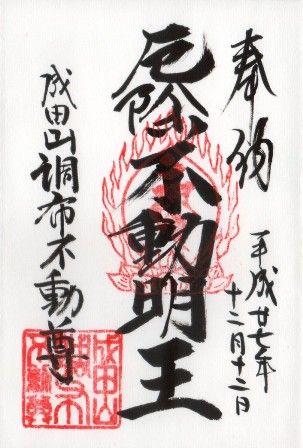 奉納
平成廿七年
十二月十二日
厄除不動明王
成田山調布不動尊
成田山
調布不
動尊